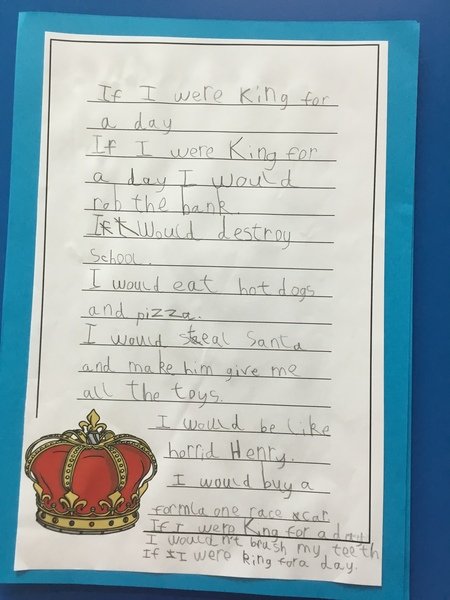 If I were King for
a day
If I were King for
a day I would
rob the bank.
I would destroy
School.
I would eat hot dogs
and pizza.
I would steal Santa
and make him give me
all the toys.
I would be like
horrid Henry.
I would buy a
formla one race car
If I were King for a day
I wouldn't brush my teeth
If I were King for a day.